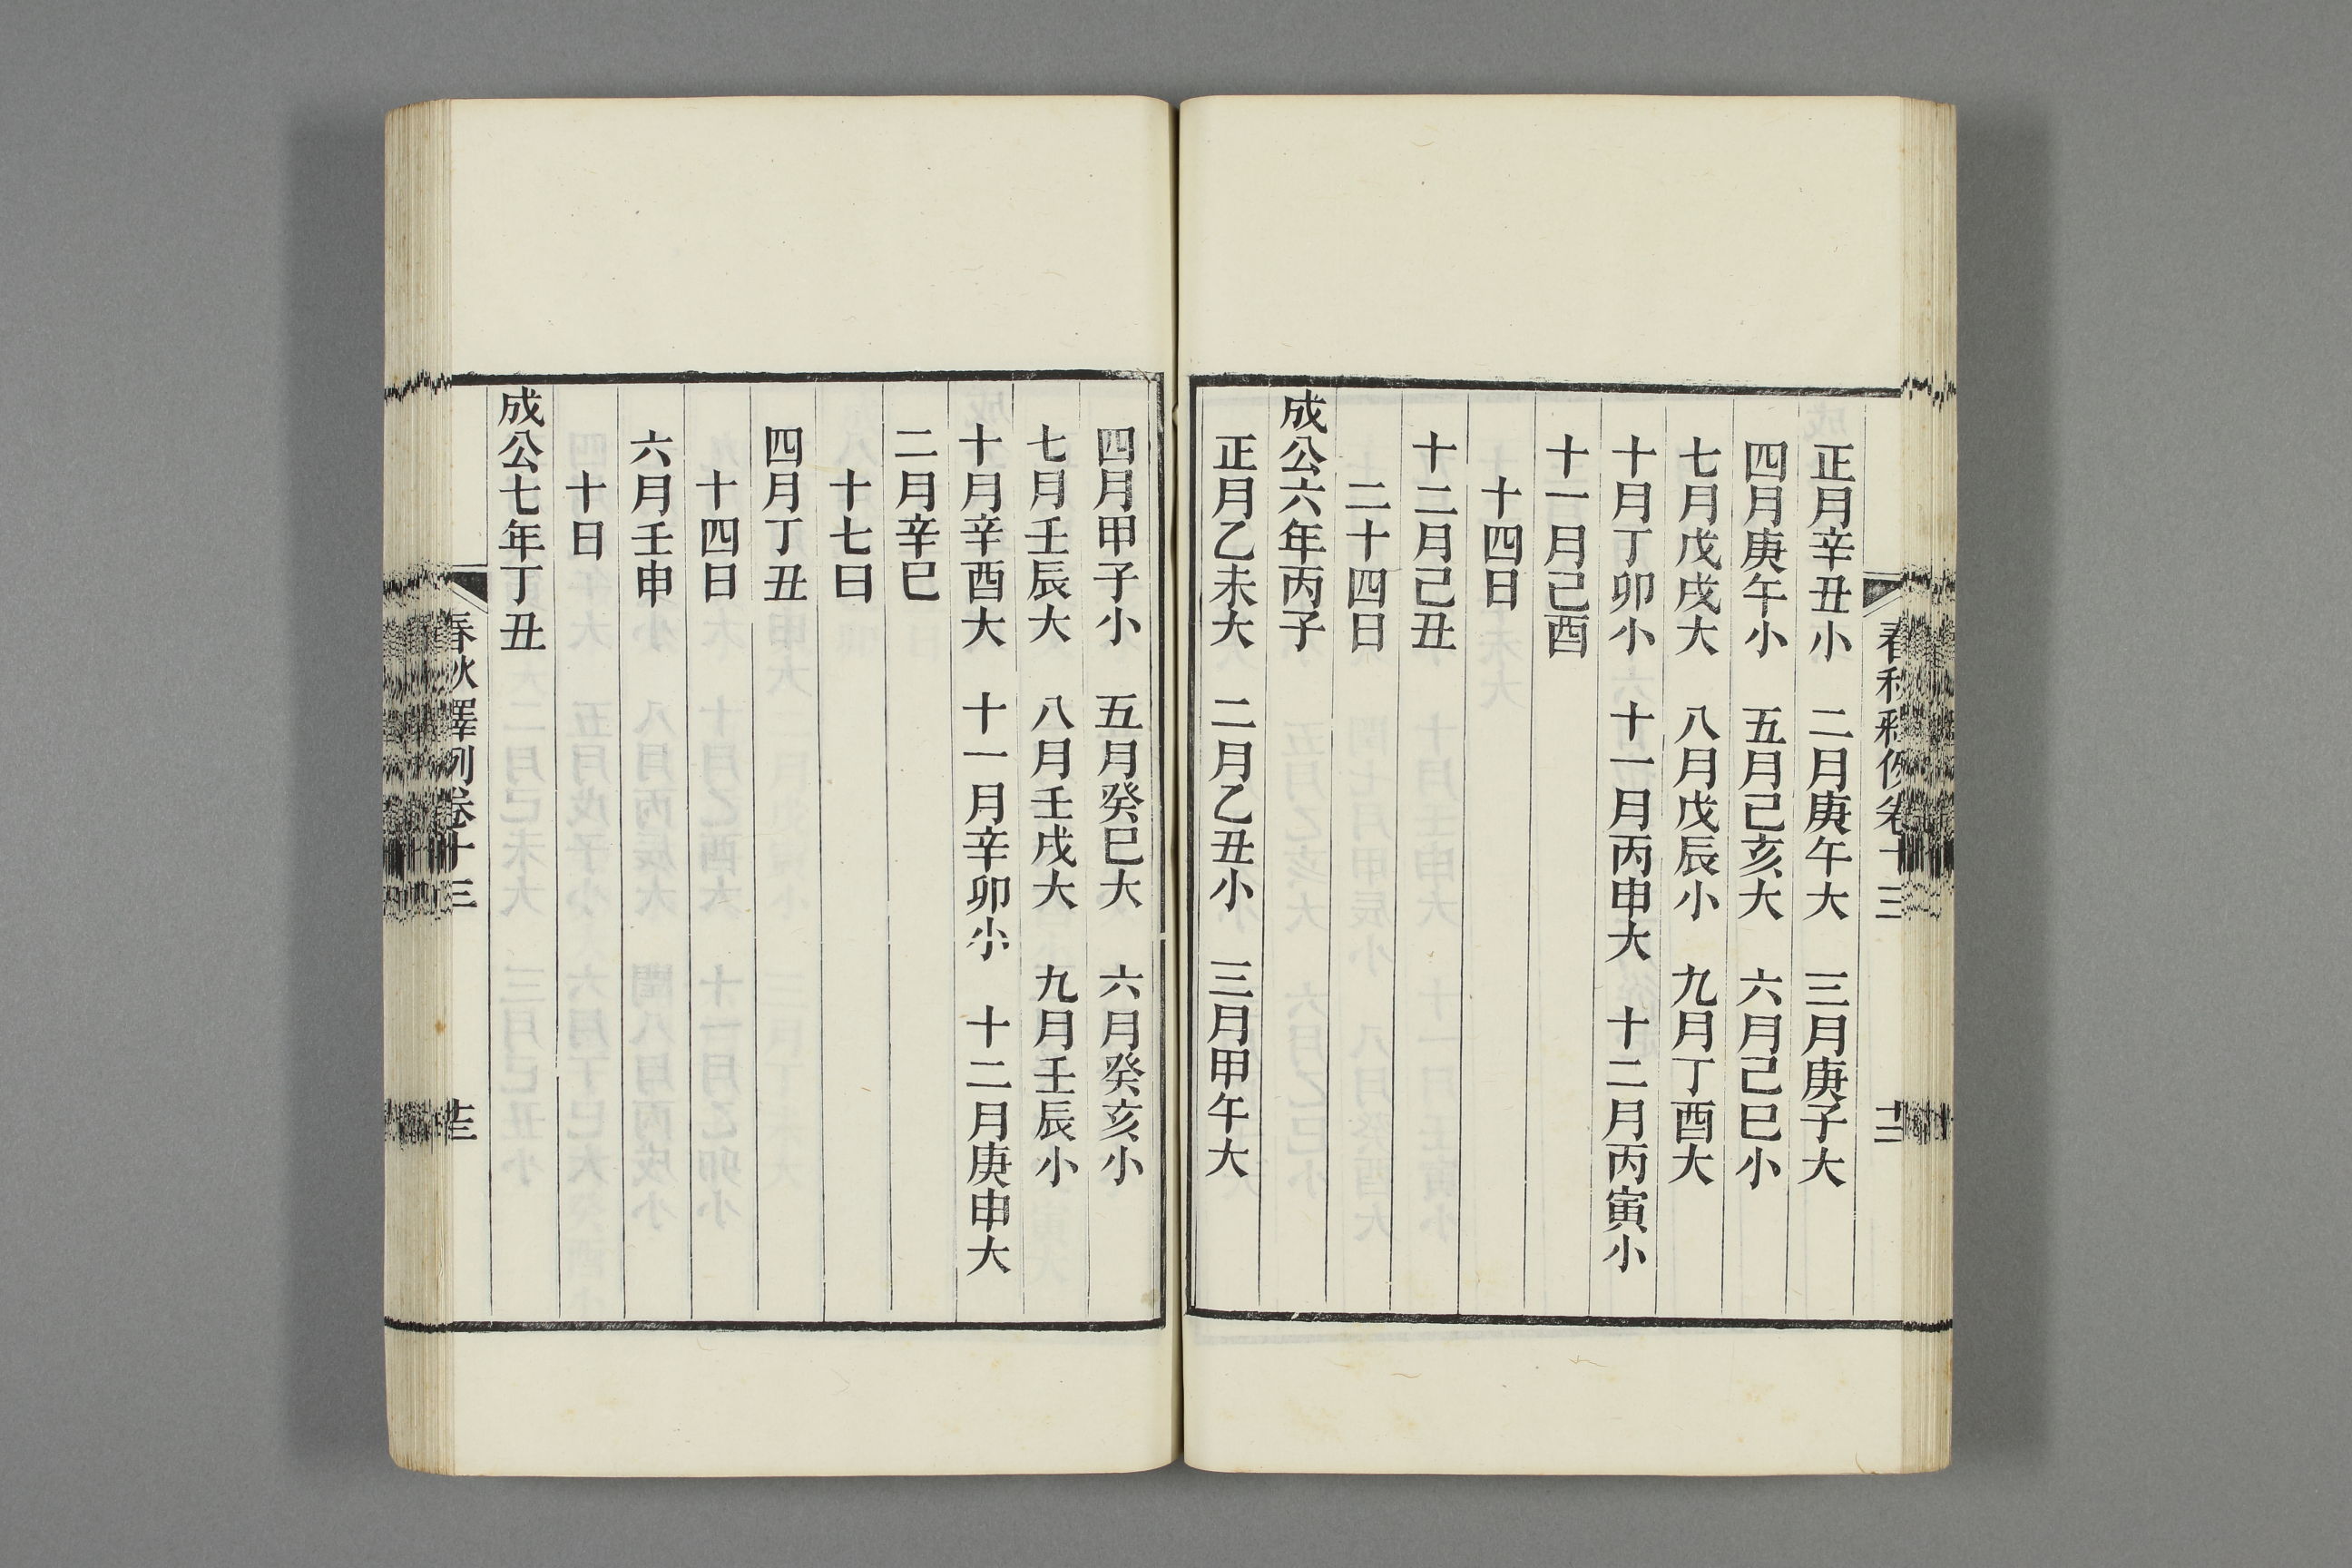 春秋釋例卷十三
正月辛丑小　二月庚午大　三月庚子大
四月庚午小　五月己亥大　六月己巳小
七月戊戌大　八月戊辰小　九月丁酉大
十月丁卯小　十一月丙申大　十二月丙寅小
十一月己酉
十四日
十二月己丑
二十四日
成公六年丙子
正月乙未大　二月乙丑小　三月甲午大
四月甲子小　五月癸巳大　六月癸亥小
七月壬辰大　八月壬戌大　九月壬辰小
十月辛酉大　十一月辛卯小　十二月庚申大
二月辛巳
十七日
四月丁丑
十四日
六月壬申
十日
成公七年丁丑
春秋釋例卷十三